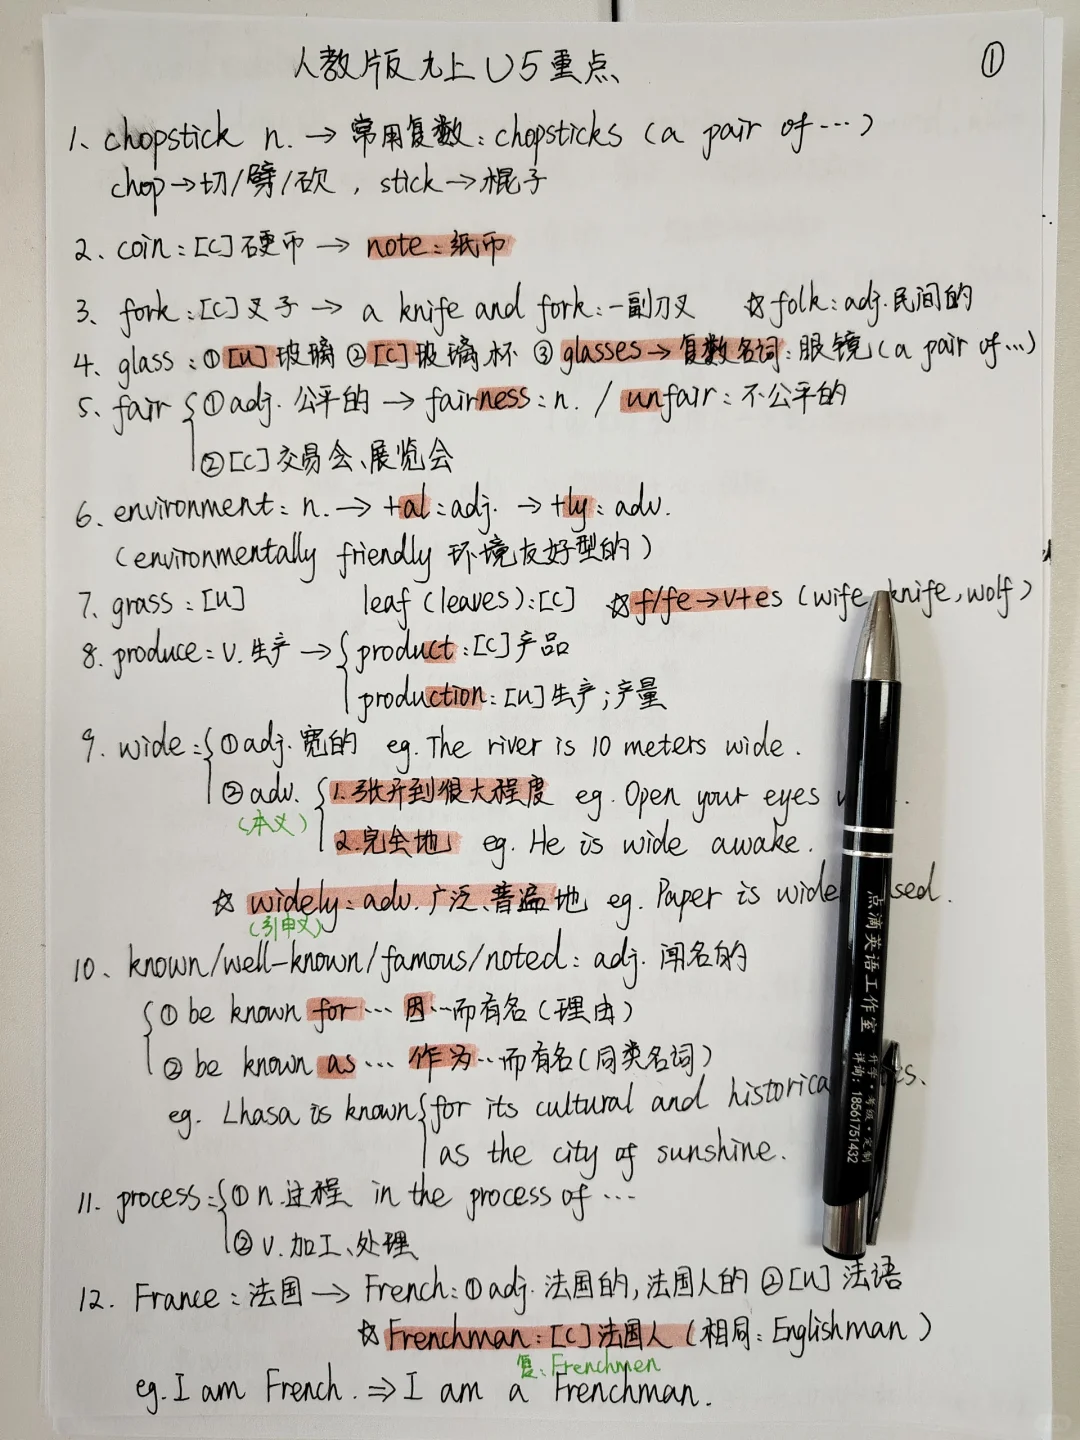 人教版九上U5重点 ①
1、chopstick n. → 常用复数：chopsticks (a pair of …)
chop→切/劈/砍，stick→棍子
2、coin：[C]硬币 → note：纸币
3、fork：[C]叉子 → a knife and fork：一副刀叉 ☆folk：adj.民间的
4、glass：①[U]玻璃 ②[C]玻璃杯 ③glasses→复数名词：眼镜(a pair of…)
5、fair ①adj. 公平的 → fairness：n. / unfair：不公平的
②[C]交易会、展览会
6、environment：n. → +al：adj. → +ly：adv.
(environmentally friendly 环境友好型的)
7、grass：[U] leaf (leaves)：[C] ☆f/fe→v+es (wife, knife, wolf)
8、produce：v.生产 → product：[C]产品
production：[U]生产；产量
9、wide：①adj.宽的 eg. The river is 10 meters wide.
②adv. 1.张开到很大程度 eg. Open your eyes
(本义) 2.完全地 eg. He is wide awake.
☆ widely：adv.广泛、普遍地 eg. Paper is
(引申义)
10、known/well-known/famous/noted：adj. 闻名的
① be known for … 因…而有名(理由)
② be known as … 作为…而有名(同类名词)
eg. Lhasa is known for its cultural and
as the city of sunshine.
11、process：①n.过程 in the process of …
②v.加工、处理
12. France：法国 → French：①adj.法国的,法国人的 ②[U]法语
☆Frenchman：[C]法国人 (相同：Englishman)
复：Frenchmen
eg. I am French. ⇒ I am a Frenchman.
点滴英语工作室
升学·考级·定制
详询：18561751432